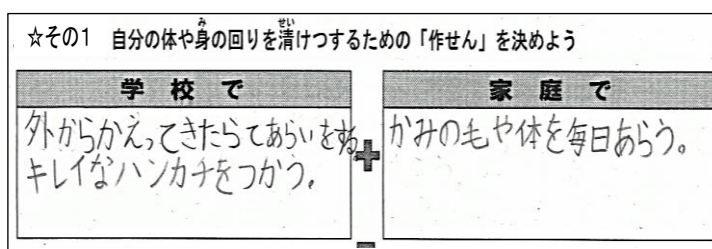 ☆その1 自分の体や身の回りを清けつするための「作せん」を決めよう
学校で
家庭で
外からかえってきたらてあらいをする。
キレイなハンカチをつかう。
かみの毛や体を毎日あらう。